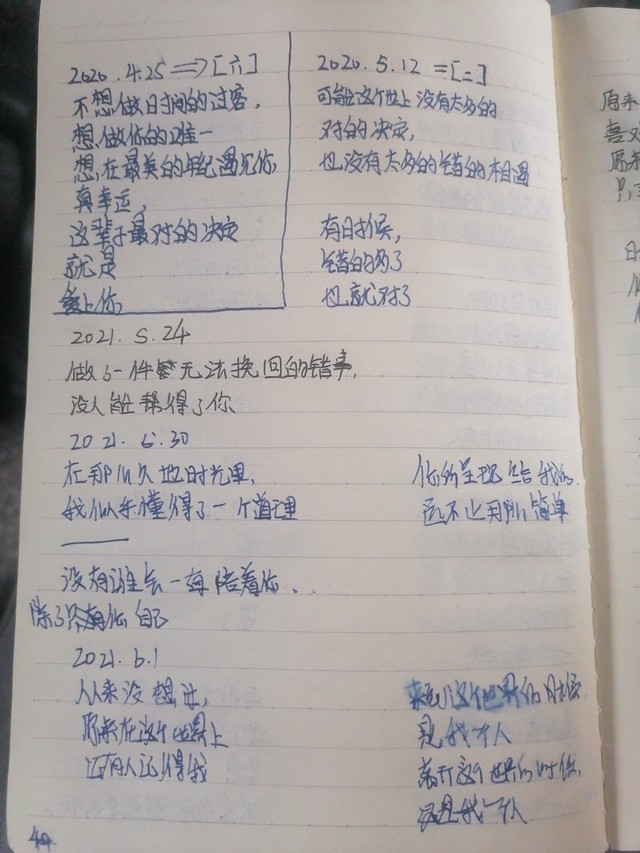 2020.4.25 => [六]
不想做时间的过客,
想做你的唯一
想在最美的年纪遇见你,
真幸运,
这辈子最对的决定
就是
爱上你,
2020.5.12 =[二]
可能这个世上没有太多的
对的决定,
也没有太多的错的相遇
有时候,
错的多了
也就对了
2021.5.24
做了一件无法挽回的错事,
没人能帮得了你
2021.5.30
在那以久地时光里,
我似乎懂得了一个道理
没有谁会一每陪着你、
除了只有你自己
你所呈现给我的,
远不止那么简单
2021.6.1
从来没想过,
原来在这个世界上
还有人记得我
来到这个世界的时候
是我一个人
离开这个世界的时候,
还是我一个人
原来
喜欢
原来
只